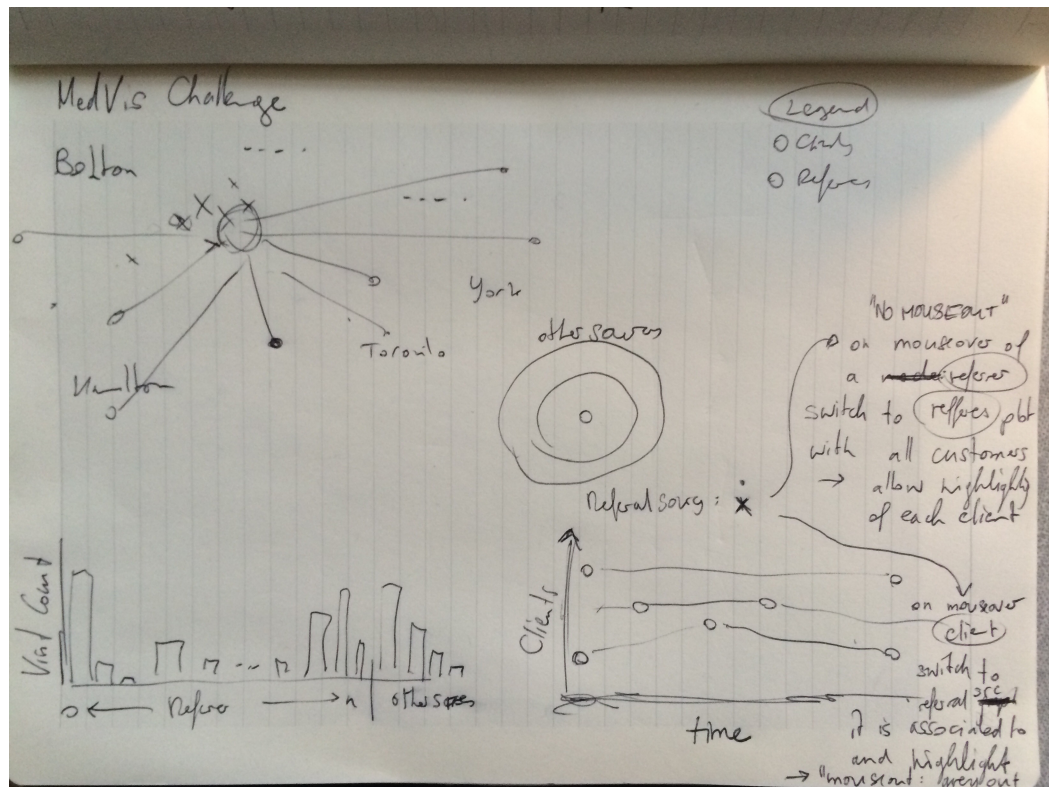 MedVis Challenge
Legend
Clients
Referes
Bolton
York
Toronto
Hamilton
other sources
Referal source: x
"NO MOUSEOUT"
on mouseover of
a referrer
switch to refferes plot
with all customers
→ allow highlighting
of each client
Visit Count
0 ← Referer → n
other sources
Clients
time
on mouseover
client
switch to
referal src
it is associated to
and highlight
→ "mouseout: grey out